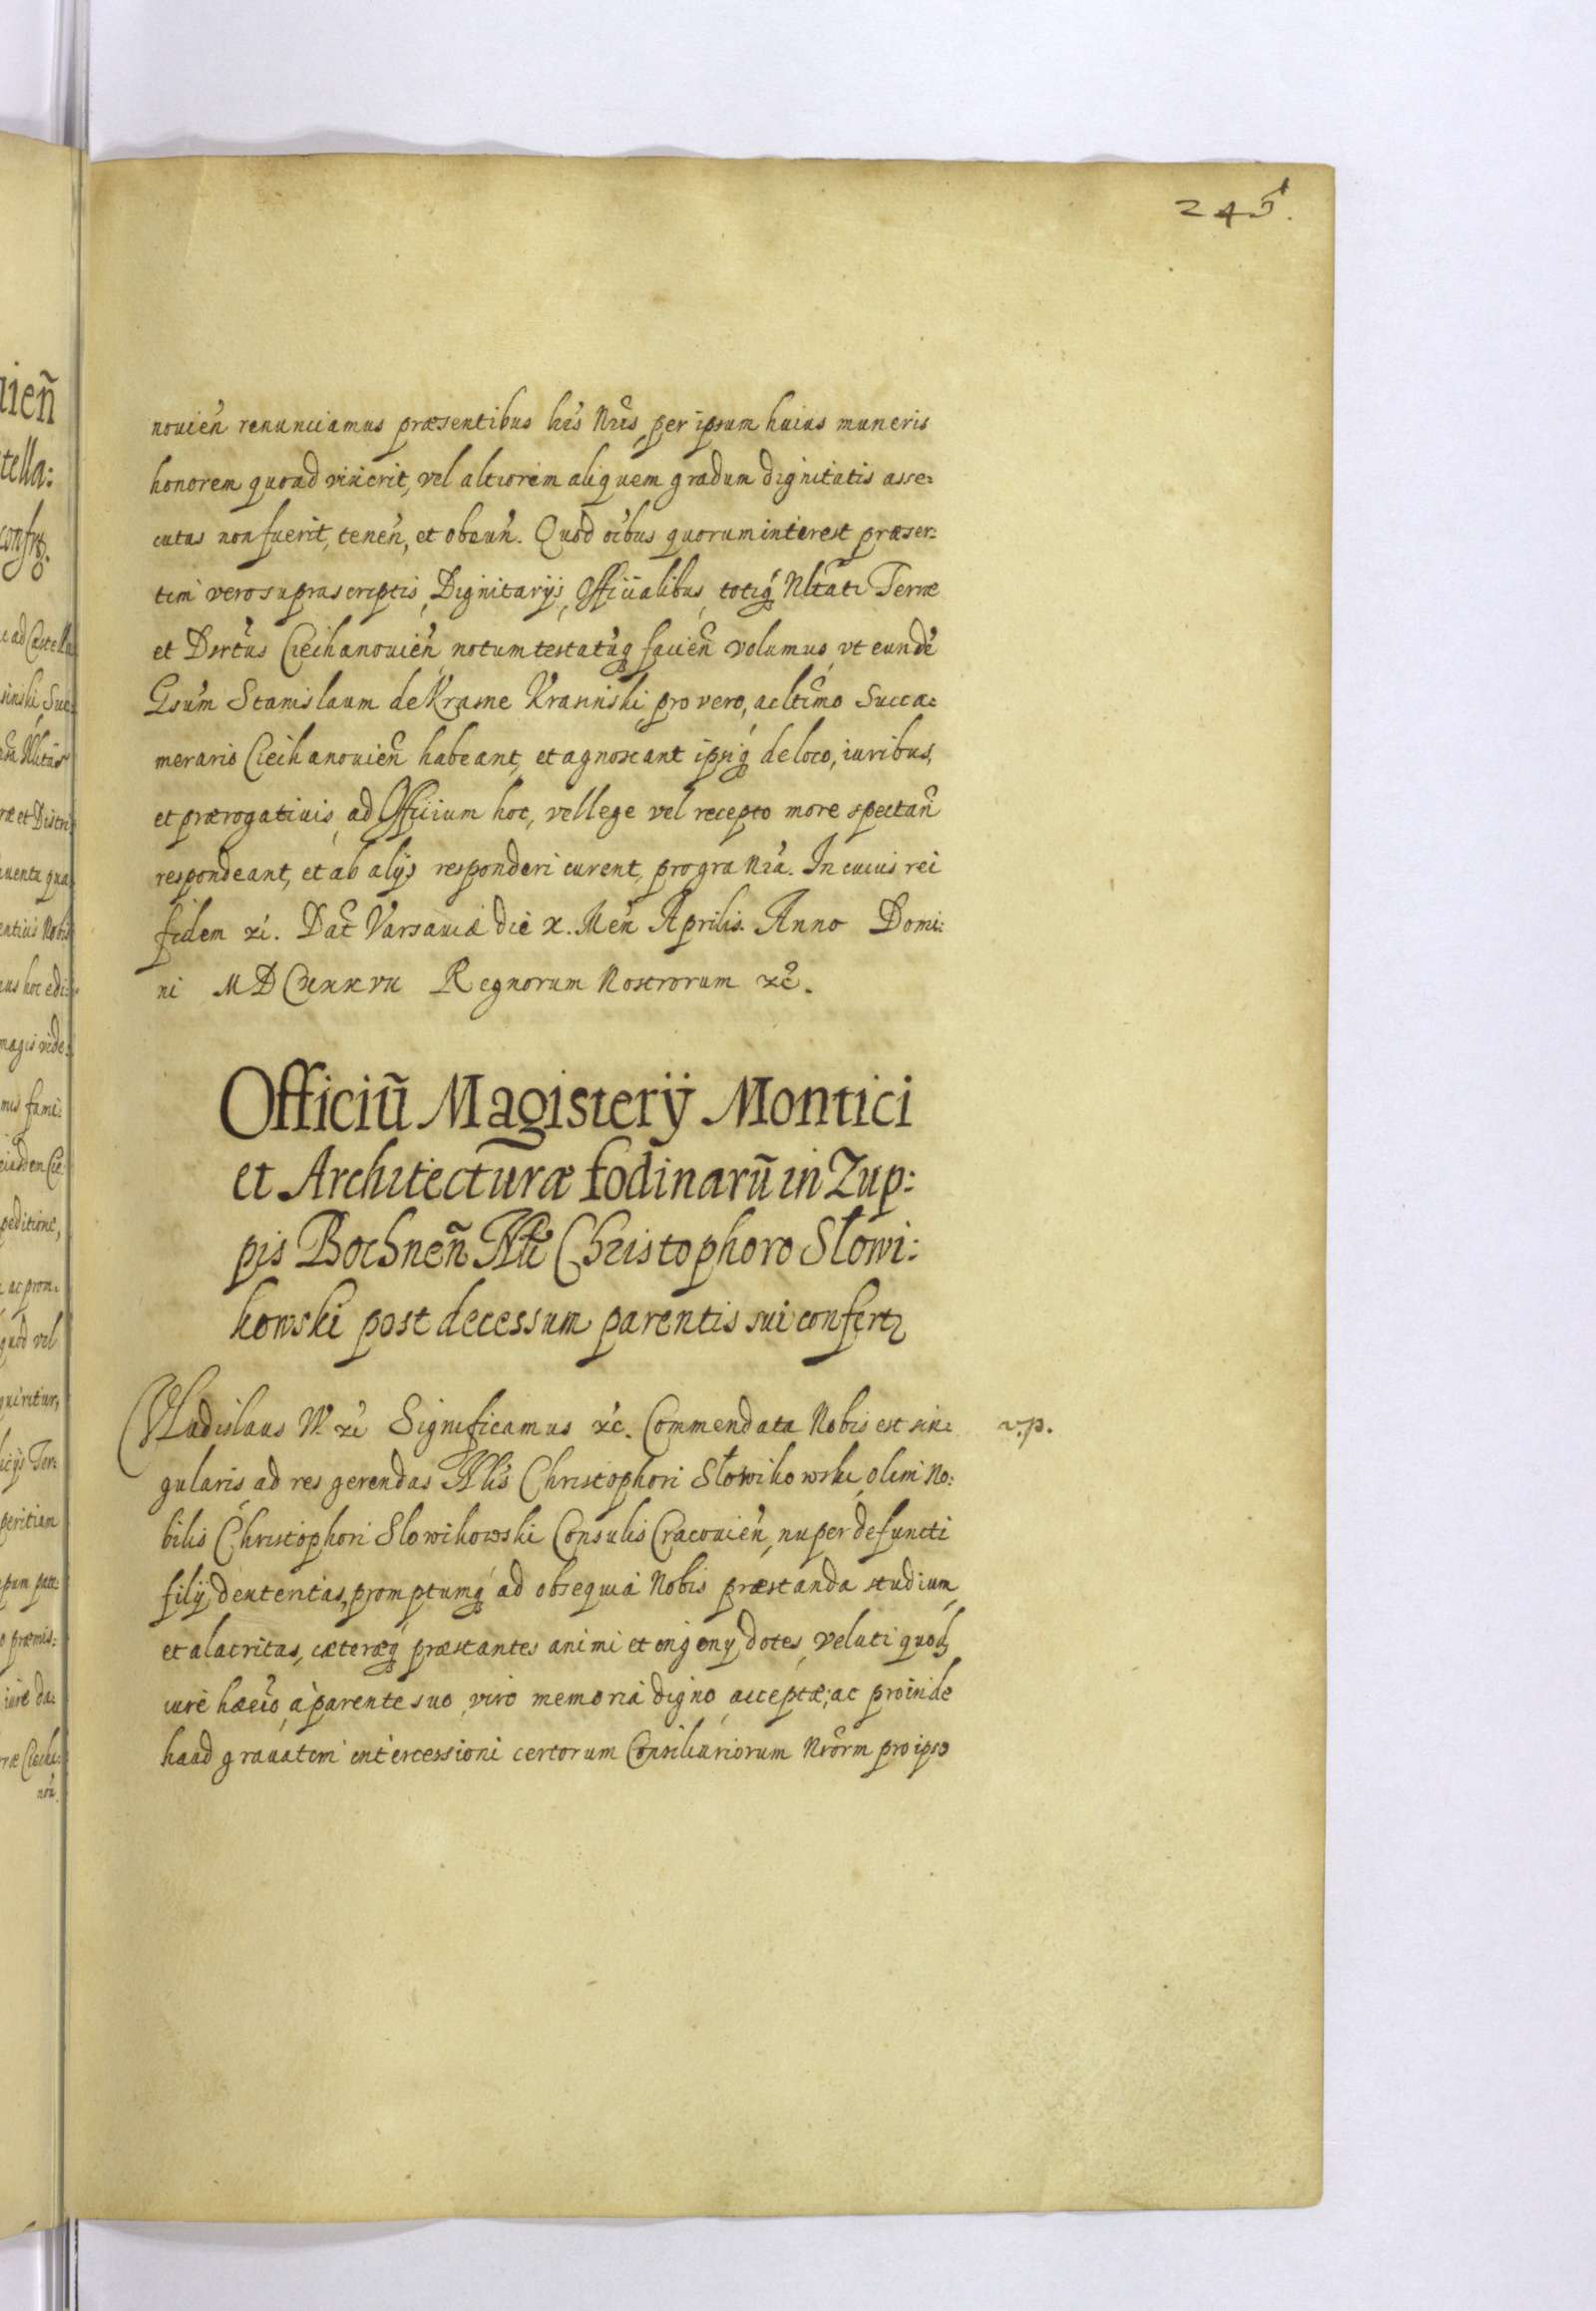 245.
nouien̄ renunciamus præsentibus lr̄is Nr̄is, per ipsum huius muneris
honorem quoad vixerit, vel altiorem aliquem gradum dignitatis asse:
cutus non fuerit, tenen̄, et obeun̄. Quod oībus quorum interest præser:
tim vero suprascriptis, Dignitarijs, Officialibus, totiq́ꝫ Nltāti Terræ
et Dsrtūs Ciechanouien̄ notum testatūqꝫ facien̄ volumus, vt eundē
Gsūm Stanislaum de Krasne Krasinski pro vero, ac ltīmo Succa:
merario Ciechanouien̄ habeant, et agnoscant ipsiq́ꝫ de loco, iuribus,
et prærogatiuis, ad Officium hoc, vel lege vel recepto more spectan̄
respondeant, et ab alijs responderi curent, pro gra Nrā. In cuius rei
fidem xc̄. Dat̄ Varsauiæ die X. Men̄ Aprilis. Anno Domi:
ni MDCXXXVII Regnorum Nostrorum xc̄.
Officiū Magisterÿ Montici
et Architecturæ fodinarū in Zup:
pis Bochnen̄ Nli Christophoro Słowi:
kowski post decessum parentis sui confertꝫ
Vladislaus IV. xc̄ Significamus xc̄. Commendata Nobis est sin:
v.p.
gularis ad res gerendas Nlis Christophori Słowikowski, olim No:
bilis Christophori Slowikowski Consulis Cracouien̄, nuper defuncti
filij, dexteritas, promptumq́ꝫ ad obsequia Nobis præstanda studium,
et alacritas, cæteræq́ꝫ præstantes animi et ingenij dotes, veluti quodā
iure hærīo, à parente suo, viro memoriâ digno, acceptæ; ac proinde
haud grauatim intercessioni certorum Consiliariorum Nrōrm pro ipso